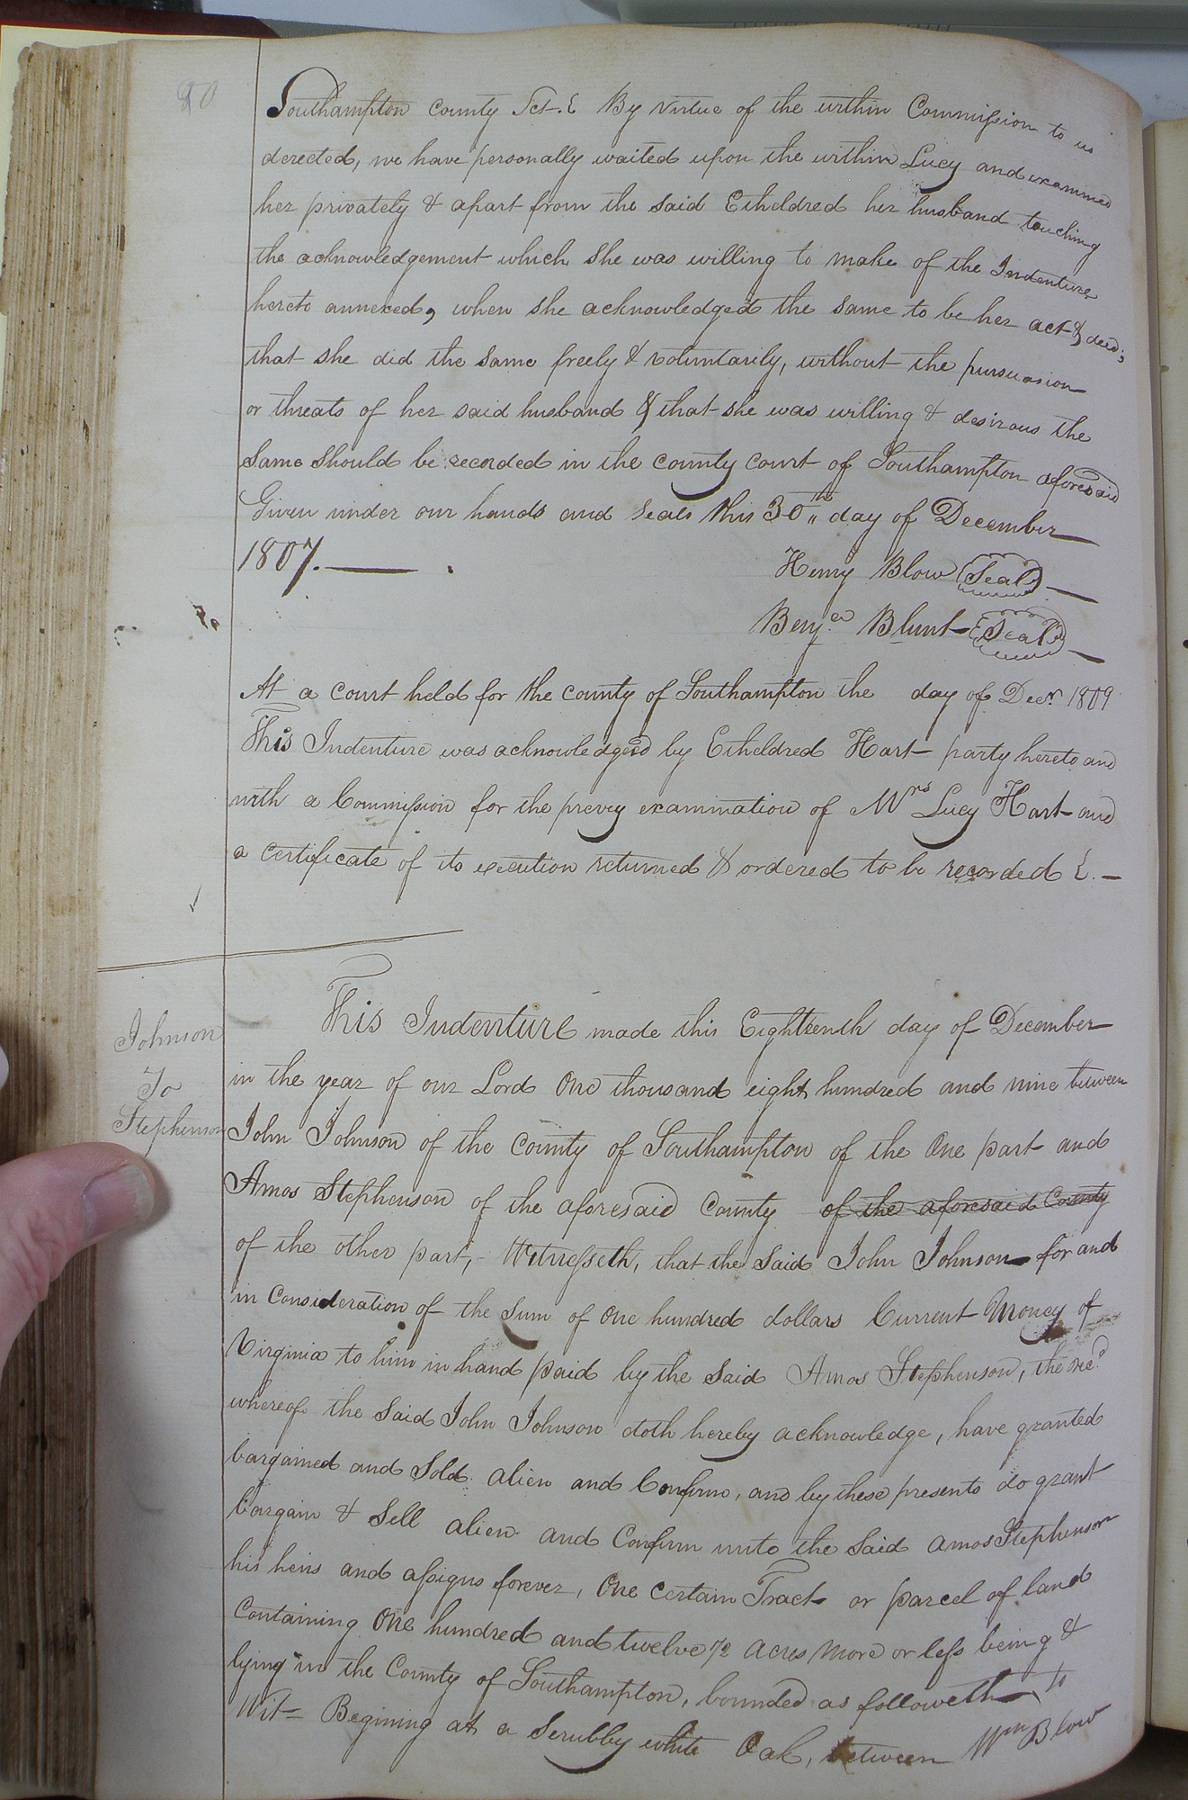 80
Southampton County Sct. By virtue of the within Commission to us
derected, we have personally waited upon the within Lucy and examined
her privately & apart from the said Etheldred her husband touching
the acknowledgement which she was willing to make of the Indenture
hereto annexed, when she acknowledged the same to be her act & deed;
that she did the same freely & voluntarily, without the pursuasion
or threats of her said husband & that she was willing & desirous the
Same Should be recorded in the county court of Southampton aforesaid
Given under our hands and seals this 30th day of December
1807.
Henry Blow Seal
Benja Blunt Seal
At a court held for the county of Southampton the day of Decr. 1809
This Indenture was acknowledged by Etheldred Hart party hereto and
with a Commission for the prevy examination of Mrs Lucy Hart and
a certificate of its execution returned & ordered to be recorded
Johnson
To
Stephenson
This Indenture made this Eighteenth day of December
in the year of our Lord One thousand eight hundred and nine between
John Johnson of the County of Southampton of the One part and
Amos Stephenson of the aforesaid County of the aforesaid County
of the other part, Witnesseth, that the Said John Johnson for and
in Consideration of the Sum of One hundred dollars Current Money of
Virginia to him in hand paid by the Said Amos Stephenson, the
whereof the Said John Johnson doth hereby acknowledge, have granted
bargained and Sold alien and Confirm, and by these presents do grant
bargain & Sell alien and Confirm unto the Said Amos Stephenson
his heirs and assigns forever, One Certain Tract or parcel of land
Containing One hundred and twelve 1/2 acres more or less being &
lying in the County of Southampton, bounded as followeth to
Wit Begining at a Scrubby white Oak, between Wm Blow